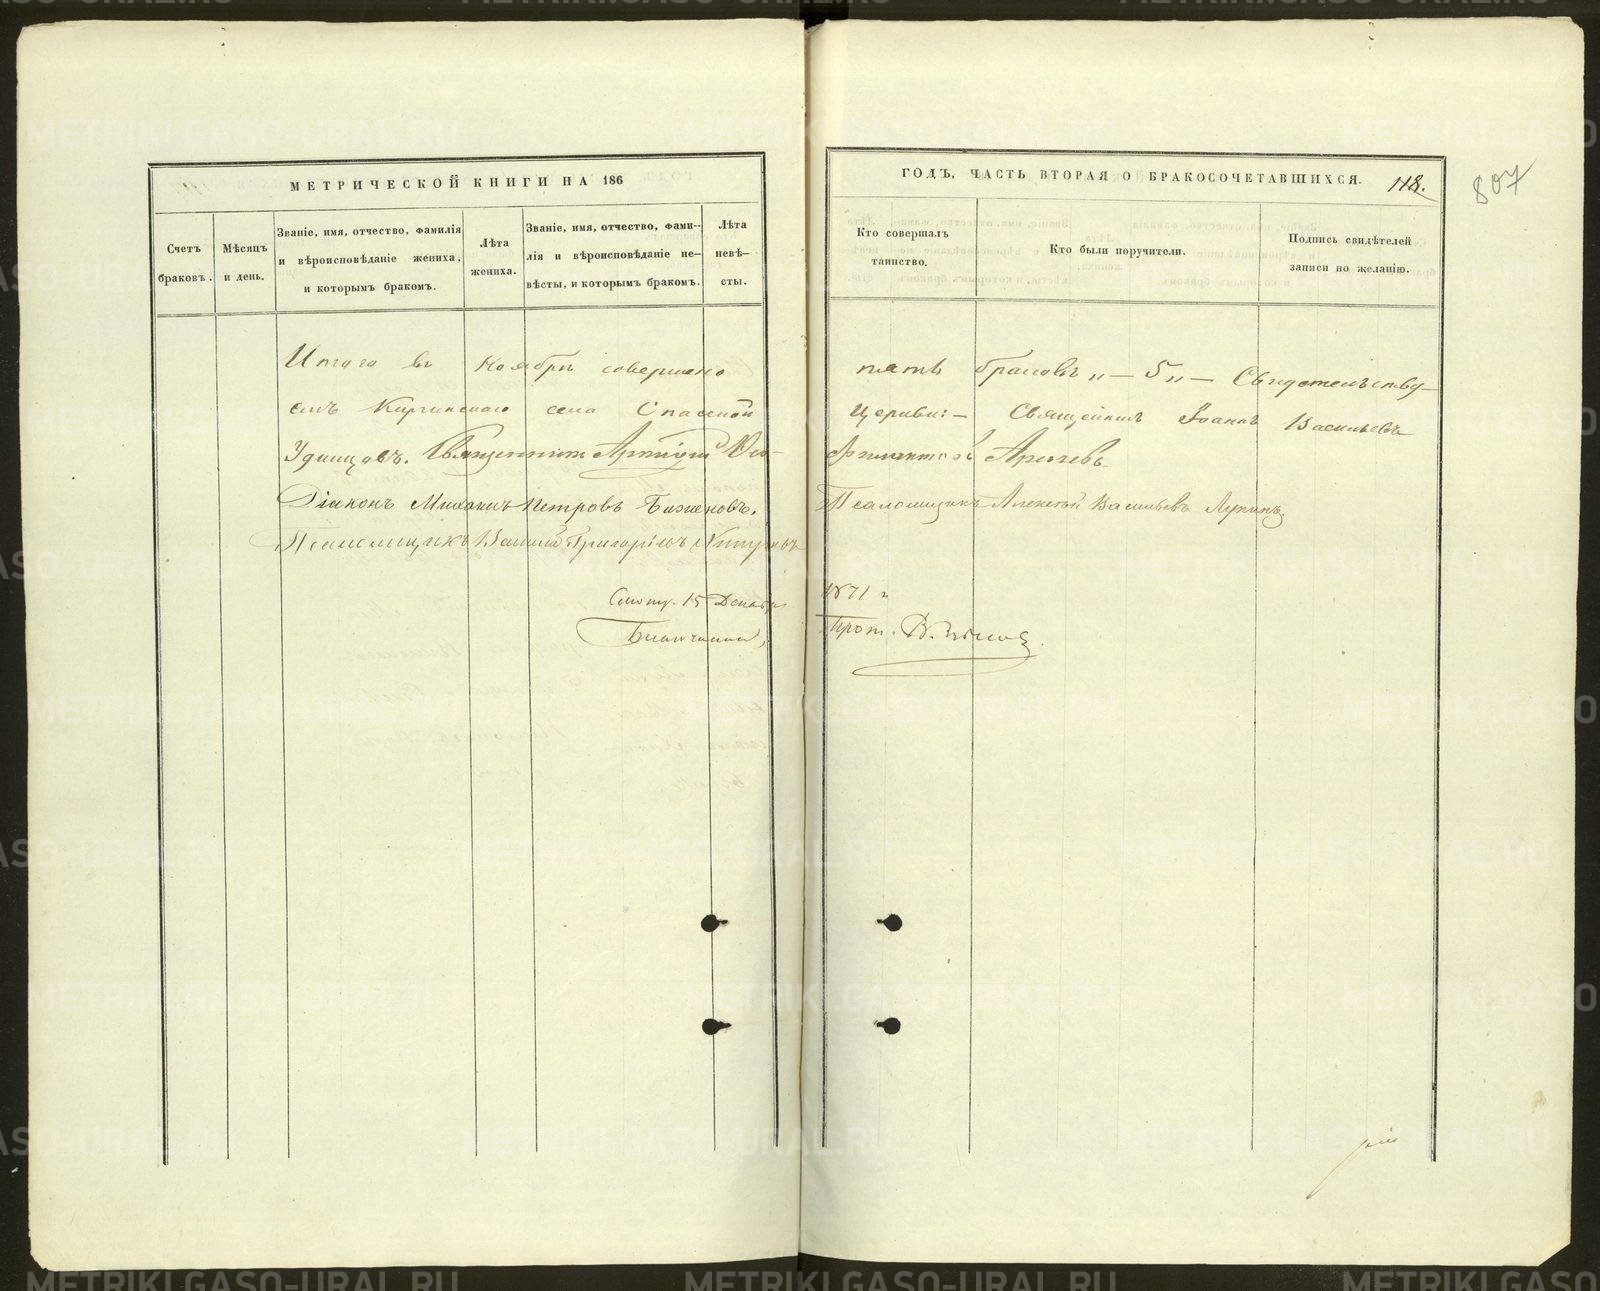 МЕТРИЧЕСКОЙ КНИГИ НА 186
ГОДЪ, ЧАСТЬ ВТОРАЯ О БРАКОСОЧЕТАВШИХСЯ.
118.
807
Счетъ
браковъ.
Мѣсяцъ
и день.
Званіе, имя, отчество, фамилія
и вѣроисповѣданіе жениха,
и которымъ бракомъ.
Лѣта
жениха.
Званіе, имя, отчество, фами-
лія и вѣроисповѣданіе не-
вѣсты, и которымъ бракомъ.
Лѣта
невѣ-
сты.
Кто совершалъ
таинство.
Кто были поручители.
Подпись свидѣтелей
записи по желанію.
Итого въ Ноябрѣ совершено пять браковъ „— 5 „— Свидѣтельству-
емъ Киргинскаго села Спасской Церкви:— Священникъ Іоаннъ Васильевъ
Удинцовъ. Священникъ
Діаконъ Михаилъ Петровъ Баженовъ. Псаломщикъ Алексѣй Васильевъ Лукинъ
Псаломщикъ Василій Григорьевъ
15 Декабря 1871 г
Благочинный, Прот. В.
METRIKI.GASO-URAL.RU